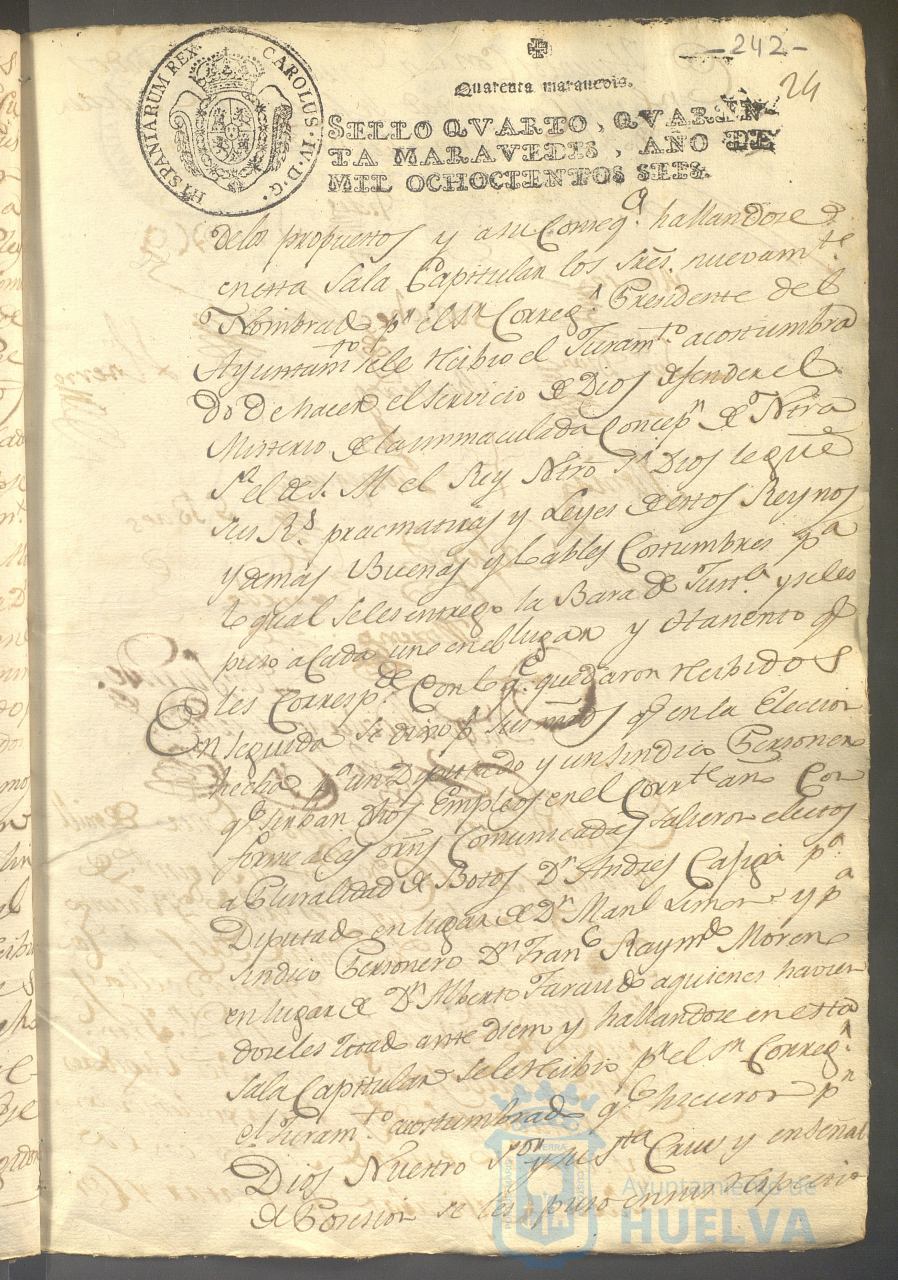 -242-
24
HISPANIARUM REX. CAROLUS·IV·D·G·
Quarenta maravedis.
SELLO QVARTO, QVAREN
TA MARAVEDIS, AÑO DE
MIL OCHOCIENTOS SEIS.
delos propuestos y a su Conseq.ª hallandose
en esta Sala Capitular los Sres. nuevam.te
Nombrad p.r el S.r Correg.r Precidente del
Ayuntam.to se le recibio el Juram.to acostumbra
do de hacer el servicio de Dios defender el
Misterio de la inmaculada Concep.n de Ntra
S.ra el de S. M el Rey Ntro S.r Dios le gue
sus R.s pracmaticas y Leyes de estos Reynos
y demas Buenas y loables Costumbres p.a
lo qual se les entrego la Bara de Just.a y se les
puso a Cada uno en el lugar y asiento q.e
les Corresp.de Con lo q.e quedaron recibidos
En seguida se dixo p.r sus mrds q.e en la Eleccion
hecha p.a un Diputado y un sindico Personero
q.e sirban dhos Empleos en el Corr.te año Con
forme a las orns Comunicadas salieron electos
a Pluralidad de Botos D.n Andres p.a
Diputad en lugar de D.n Man.l Limon y p.a
Sindico Personero D.n Fran.co Raym.do Moreno
en lugar de D.n Alberto a quienes havien
doseles citad ante diem y hallandose en esta
Sala Capitular se le recibio p.r el S.r Correg.r
el Juram.to acostumbrad q.e hicieron p.r
Dios Nuestro S.or y su S.ta Cruz y en señal
de Posesion se les puso en sus respectivo
Ayuntamiento de
HUELVA